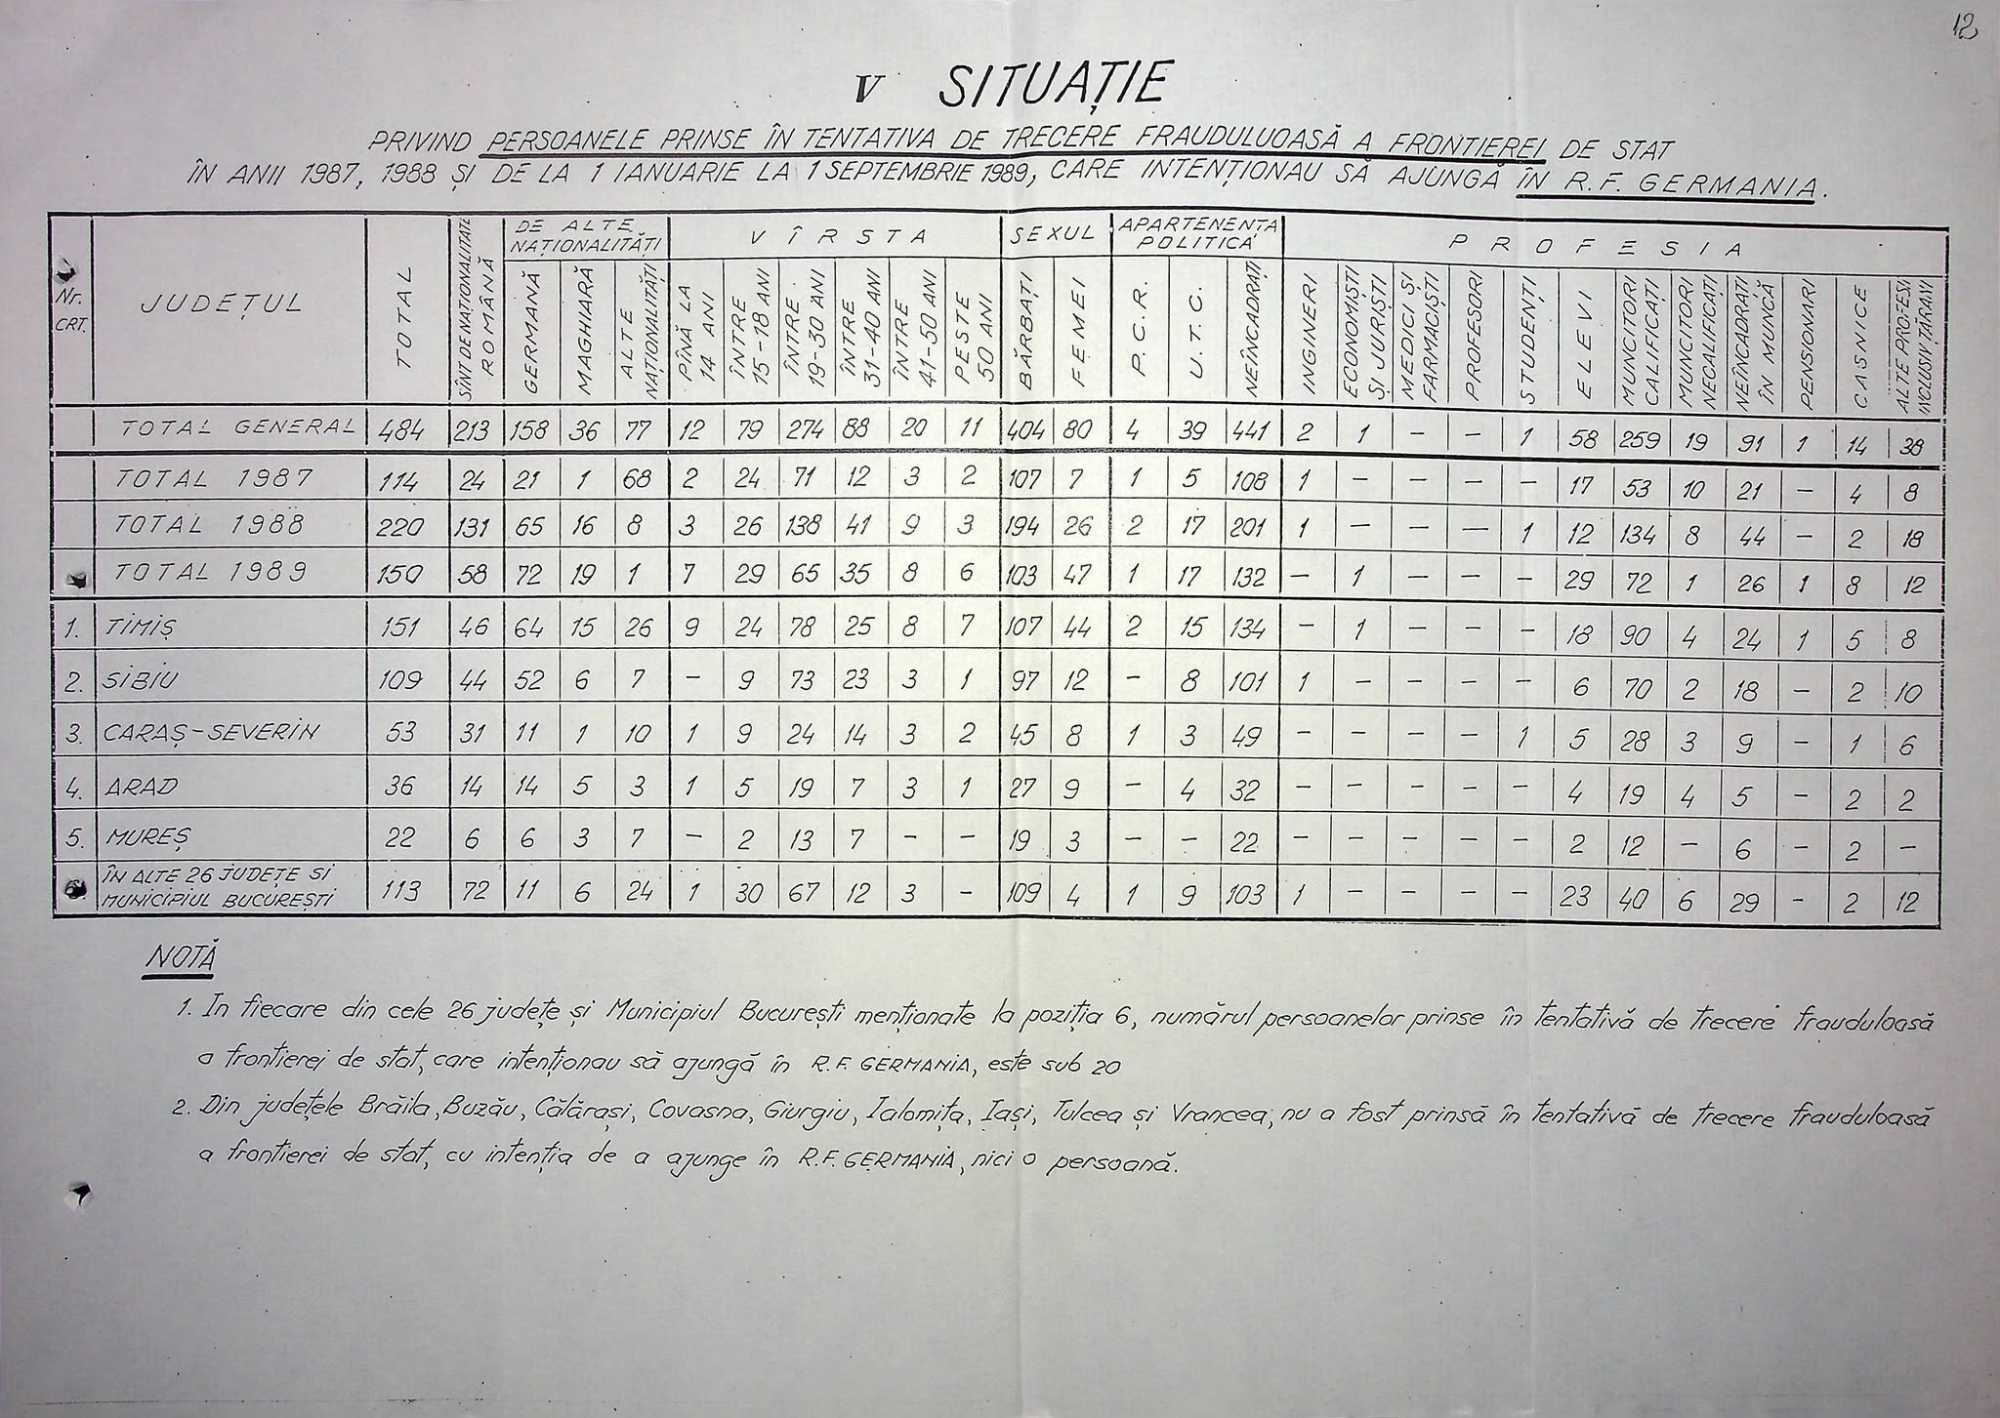 12
V SITUAȚIE
PRIVIND PERSOANELE PRINSE ÎN TENTATIVA DE TRECERE FRAUDULUOASĂ A FRONTIEREI DE STAT
ÎN ANII 1987, 1988 ȘI DE LA 1 IANUARIE LA 1 SEPTEMBRIE 1989, CARE INTENȚIONAU SĂ AJUNGĂ ÎN R.F. GERMANIA.
Nr. CRT. JUDEȚUL TOTAL SÎNT DE NAȚIONALITATE ROMÂNĂ DE ALTE NAȚIONALITĂȚI VÎRSTA SEXUL APARTENENȚA POLITICĂ PROFESIA
GERMANĂ MAGHIARĂ ALTE NAȚIONALITĂȚI PÎNĂ LA 14 ANI ÎNTRE 15-18 ANI ÎNTRE 19-30 ANI ÎNTRE 31-40 ANI ÎNTRE 41-50 ANI PESTE 50 ANI BĂRBAȚI FEMEI P.C.R. U.T.C. NEÎNCADRAȚI INGINERI ECONOMIȘTI ȘI JURIȘTI MEDICI ȘI FARMACIȘTI PROFESORI STUDENȚI ELEVI MUNCITORI CALIFICAȚI MUNCITORI NECALIFICAȚI NEÎNCADRAȚI ÎN MUNCĂ PENSIONARI CASNICE ALTE PROFESII INCLUSIV ȚĂRANI
TOTAL GENERAL 484 213 158 36 77 12 79 274 88 20 11 404 80 4 39 441 2 1 – – 1 58 259 19 91 1 14 38
TOTAL 1987 114 24 21 1 68 2 24 71 12 3 2 107 7 1 5 108 1 – – – – 17 53 10 21 – 4 8
TOTAL 1988 220 131 65 16 8 3 26 138 41 9 3 194 26 2 17 201 1 – – – 1 12 134 8 44 – 2 18
TOTAL 1989 150 58 72 19 1 7 29 65 35 8 6 103 47 1 17 132 – 1 – – – 29 72 1 26 1 8 12
1. TIMIȘ 151 46 64 15 26 9 24 78 25 8 7 107 44 2 15 134 – 1 – – – 18 90 4 24 1 5 8
2. SIBIU 109 44 52 6 7 – 9 73 23 3 1 97 12 – 8 101 1 – – – – 6 70 2 18 – 2 10
3. CARAȘ-SEVERIN 53 31 11 1 10 1 9 24 14 3 2 45 8 1 3 49 – – – – 1 5 28 3 9 – 1 6
4. ARAD 36 14 14 5 3 1 5 19 7 3 1 27 9 – 4 32 – – – – – 4 19 4 5 – 2 2
5. MUREȘ 22 6 6 3 7 – 2 13 7 – – 19 3 – – 22 – – – – – 2 12 – 6 – 2 –
6. ÎN ALTE 26 JUDEȚE SI
MUNICIPIUL BUCUREȘTI 113 72 11 6 24 1 30 67 12 3 – 109 4 1 9 103 1 – – – – 23 40 6 29 – 2 12
NOTĂ
1. In fiecare din cele 26 județe și Municipiul București menționate la poziția 6, numărul persoanelor prinse în tentativă de trecere frauduloasă
a frontierei de stat, care intenționau să ajungă în R.F. GERMANIA, este sub 20
2. Din județele Brăila, Buzău, Călărași, Covasna, Giurgiu, Ialomița, Iași, Tulcea și Vrancea, nu a fost prinsă în tentativă de trecere frauduloasă
a frontierei de stat, cu intenția de a ajunge în R.F. GERMANIA, nici o persoană.